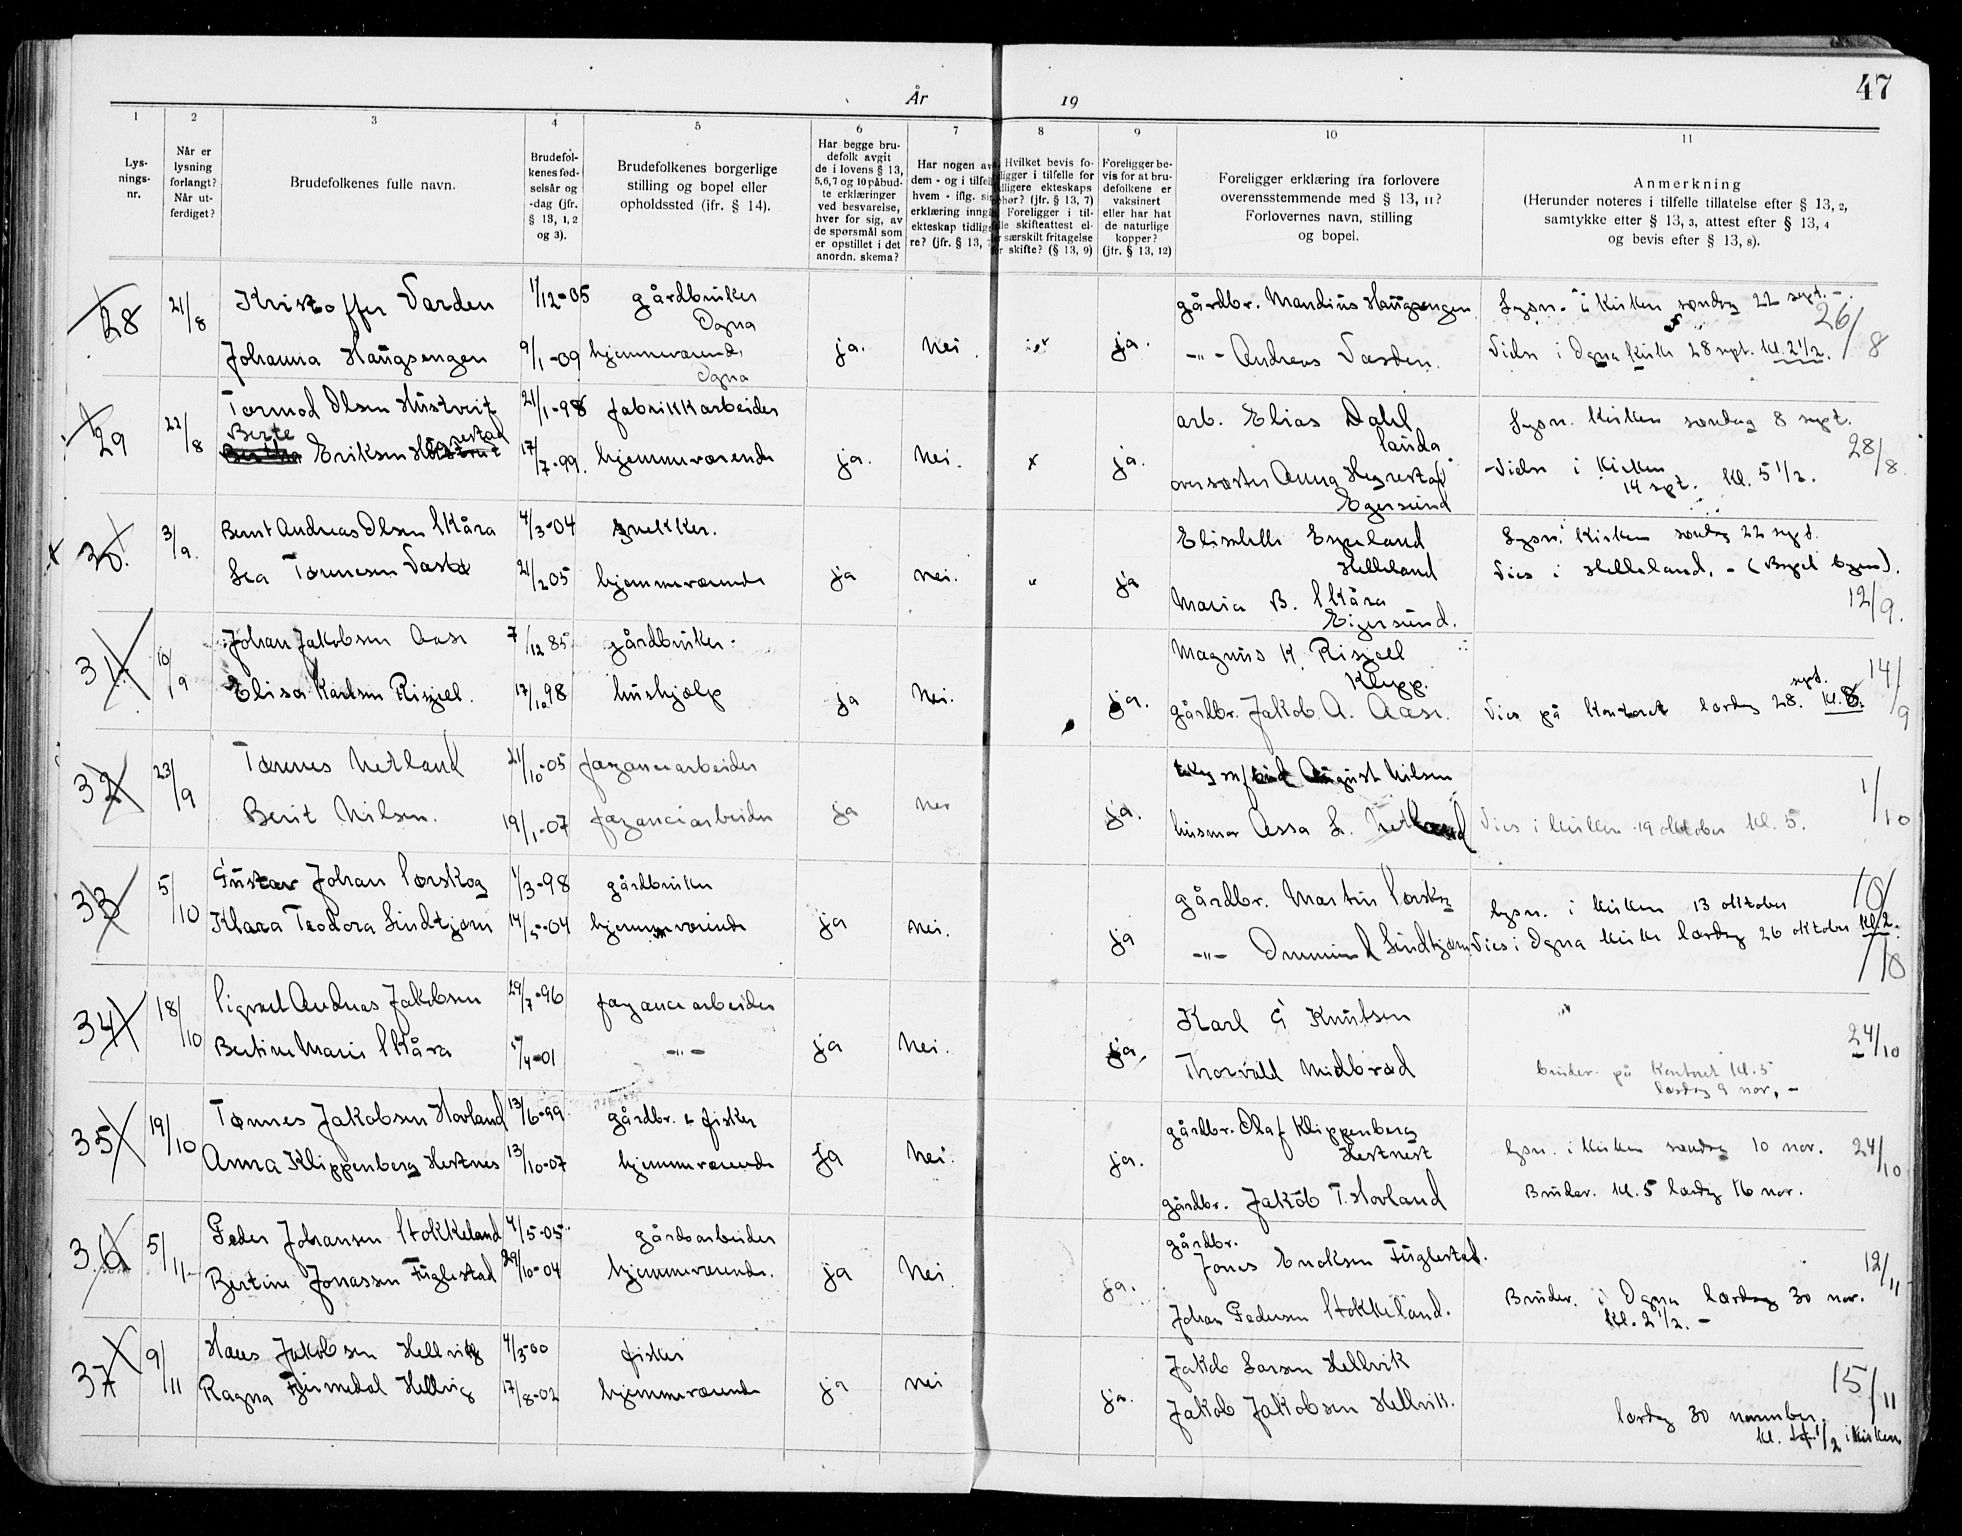 År 19
47
1 2 3 4 5 6 7 8 9 10 11
Lys-
nings-
nr.
Når er
lysning
forlangt?
Når ut-
ferdiget?
Brudefolkenes fulle navn.
Brudefol-
kenes fød-
selsår og
-dag (jfr.
§ 13, 1, 2
og 3).
Brudefolkenes borgerlige
stilling og bopel eller
opholdssted (jfr. § 14).
Har begge bru-
defolk avgit
de i lovens § 13,
5,6,7 og 10 påbud-
te erklæringer
ved besvarelse,
hver for sig, av
de spørsmål som
er opstillet i det
anordn. skema?
Har nogen av
dem - og i tilfelle
hvem - iflg.
erklæring inngå
ekteskap tidlige-
re? (jfr. § 13,
Hvilket bevis fo-
religger i tilfelle for
tidligere ekteskaps
ophør? (jfr. § 13, 7)
Foreligger i til-
felle skifteattest el-
ler særskilt fritagelse
for skifte? (§ 13, 9)
Foreligger be-
vis for at bru-
defolkene er
vaksinert
eller har hat
de naturlige
kopper?
(jfr. § 13, 12)
Foreligger erklæring fra forlovere
overensstemmende med § 13, 11?
Forlovernes navn, stilling
og bopel.
Anmerkning
(Herunder noteres i tilfelle tillatelse efter § 13, 2,
samtykke etter § 13, 3, attest efter § 13, 4
og bevis efter § 13, 8).
28 21/8 Kristoffer Varden 1/12-05 gårdbruker Ogna gårdbr. Mandius Haugsengen Lysn. i kirken søndag 22 sept. -
Johanna Haugsengen 9/1-09 hjemmeværende Ogna ja. Nei ja. -"- Andreas Varden. Vies i Ogna kirke 28 sept. kl. 2 1/2. 26/8
29 22/8 Tormod Olsen Hustveit 21/1-98 fabrikkarbeider arb. Elias Dahl Lysn. kirken søndag 8 sept.
Berte Eriksen 17/7-99. hjemmeværende ja. Nei. x ja. Anna Hegrestad Egersund Vies i kirken 14 sept. kl. 5 1/2. 28/8
30. 3/9. Bernt Andreas Olsen Skåra 4/3-04 snekker. Helleland Lysn. i kirken søndag 22 sept.
Lea Tønnesen 21/2 05 hjemmeværende ja nei. " ja Maria B. Skåra Eigersund. Vies i Helleland. - 12/9.
31 10/9 Johan Jakobsen Aase 7/12 85 gårdbruker. Magnus K. Risjell Klepp.
Elisa Karlsen Risjell. 17/12 98 hushjelp ja Nei. ja. gårdbr. Jakob A. Aase. Vies på kontoret lørdag 28. sept. kl. 14/9
32 23/9 Tønnes Netland 21/10-05 fayancearbeider August Nilsen
Berit Nilsen. 19/1-07 fayancearbeider ja nei ja. husmor Assa L. Netland Vies i kirken 19 oktober kl. 5. 1/10
33 5/10 Gustav Johan Sørskog 1/3-98 gårdbruker gårdbr. Martin Sørskog Lysn. i kirken 13 oktober
Klara Teodora Lindtjørn 14/5-04 hjemmeværende ja nei. ja -"- Ommund Lindtjørn Vies i Ogna kirke lørdag 26 oktober kl. 2. 10/10
34 18/10 Sigvart Andreas Jakobsen 29/7-96 fayancearbeider Karl G Knutsen
Bertine Marie Skåra 5/4-01 -"- ja Nei. ja. Thorvald Midbrød bruder. på kontoret kl. 5 lørdag 9 nov. - 24/10
35 19/10 Tønnes Jakobsen Hovland 13/6-99 gårdbr. & fisker gårdbr. Olaf Klippenberg Hestnest Lysn. i kirken søndag 10 nov. 24/10
Anna Klippenberg Hestnes 13/10-07 hjemmeværende ja Nei. ja. gårdbr. Jakob T. Hovland Bruder. kl. 5 lørdag 16 nov.
36 5/11 Peder Johansen Stokkeland 4/5-05 gårdsarbeider gårdbr. Jonas Enoksen Fuglestad. 12/11
Bertine Jonassen Fuglestad 29/10-04 hjemmeværende. ja Nei. ja. Johan Pedersen Stokkeland. Bruder. i Ogna lørdag 30 nov. kl. 2 1/2. -
37 9/11 Hans Jakobsen Hellvik 4/3-00 fisker Jakob Larsen Hellvik 15/11
Ragna Hellvig 17/8-02 hjemmeværende ja nei ja. Jakob Jakobsen Hellvik. lørdag 30 november. kl. 1/2 i kirken